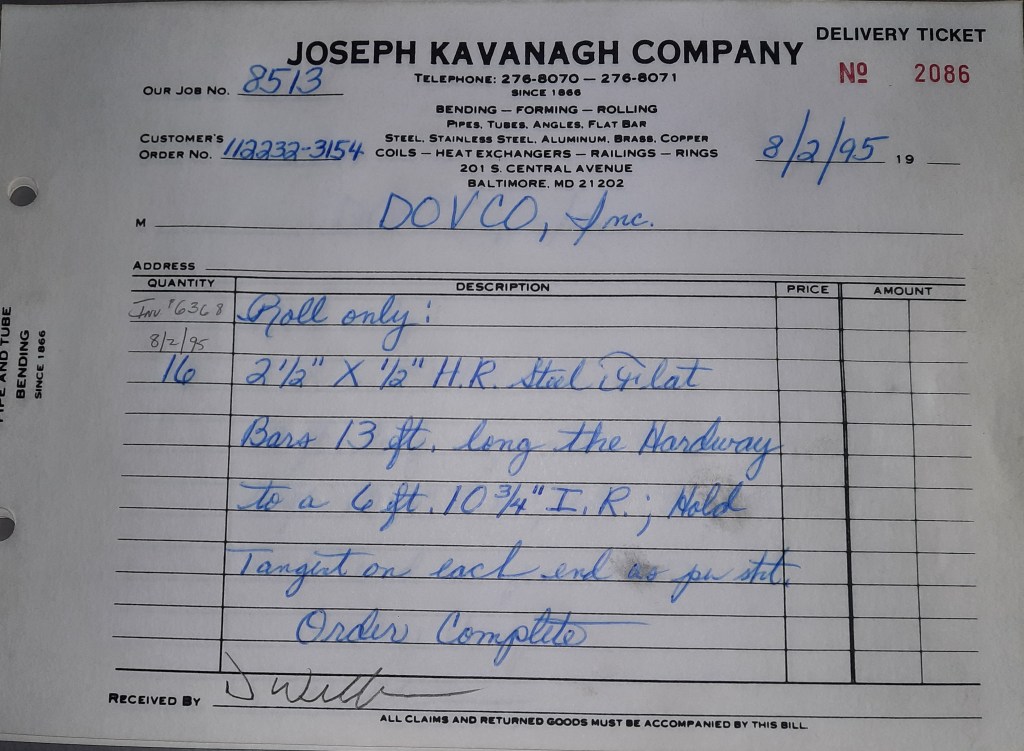 DELIVERY TICKET
JOSEPH KAVANAGH COMPANY
TELEPHONE: 276-8070 — 276-8071
Nº 2086
OUR JOB NO. 8513
SINCE 1866
BENDING — FORMING — ROLLING
PIPES, TUBES, ANGLES, FLAT BAR
CUSTOMER'S
ORDER NO. 112232-3154
STEEL, STAINLESS STEEL, ALUMINUM, BRASS, COPPER
COILS — HEAT EXCHANGERS — RAILINGS — RINGS
8/2/95 19
201 S. CENTRAL AVENUE
BALTIMORE, MD 21202
M DOVCO, Inc.
ADDRESS
QUANTITY DESCRIPTION PRICE AMOUNT
Inv #6368 Roll only:
8/2/95
16 2 1/2" X 1/2" H.R. Steel Flat
Bars 13 ft. long the Hardway
to a 6 ft. 10 3/4" I.R.; Hold
Tangent on each end as per sht.
Order Complete
RECEIVED BY
ALL CLAIMS AND RETURNED GOODS MUST BE ACCOMPANIED BY THIS BILL
PIPE AND TUBE
BENDING
SINCE 1866